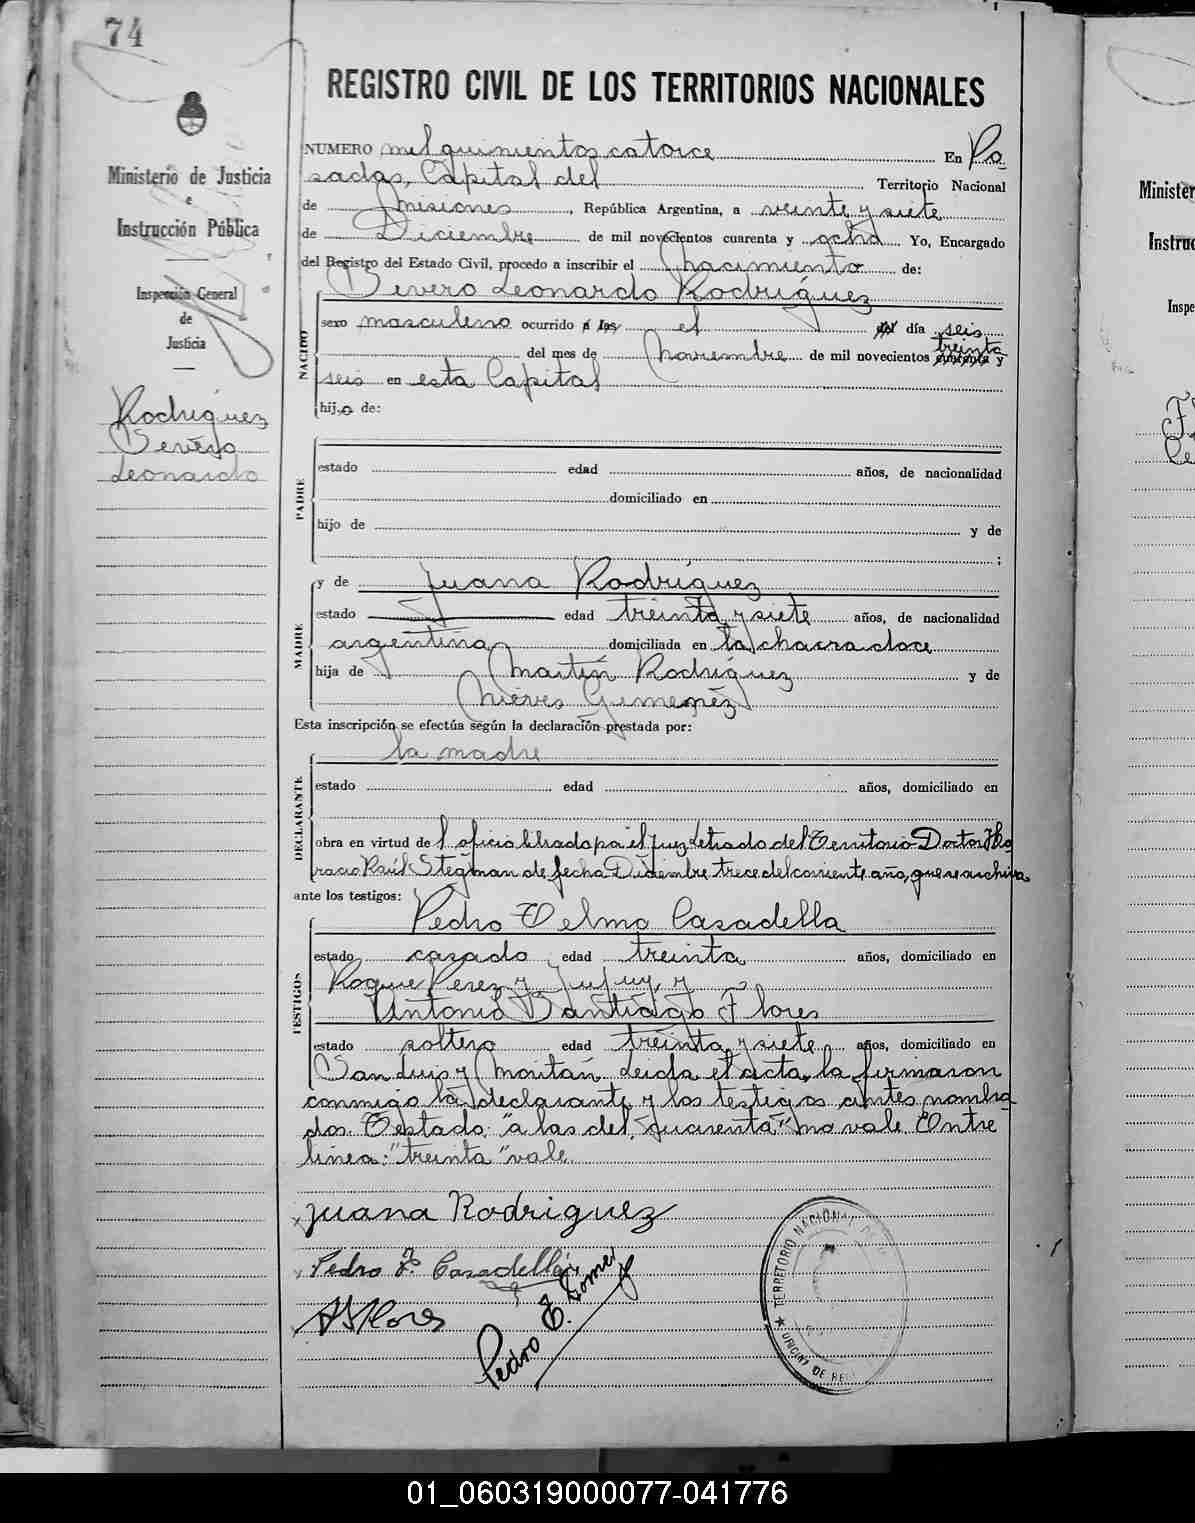 74
REGISTRO CIVIL DE LOS TERRITORIOS NACIONALES
Ministerio de Justicia
e
Instrucción Pública
Inspección General
de
Justicia
Rodriguez
Severo
Leonardo
NUMERO mil quinientos catorce En Po
sadas, Capital del Territorio Nacional
de Misiones, República Argentina, a veinte y siete
de Diciembre de mil novecientos cuarenta y ocho Yo, Encargado
del Registro del Estado Civil, procedo a inscribir el nacimiento de:
Severo Leonardo Rodríguez
NACIDO
sexo masculino ocurrido á las el del día seis
treinta
del mes de Noviembre de mil novecientos cuarenta y
seis en esta Capital
hijo de:
PADRE
estado edad años, de nacionalidad
domiciliado en
hijo de y de
;
MADRE
y de Juana Rodríguez
estado edad treinta y siete años, de nacionalidad
argentina domiciliada en la chacra doce
hija de Martín Rodríguez y de
Nieves Gimenez
Esta inscripción se efectúa según la declaración prestada por:
DECLARANTE
la madre
estado edad años, domiciliado en
obra en virtud del oficio librado por el Juez Letrado del Territorio Doctor Ho
racio Raúl Stegman de fecha Diciembre trece del corriente año, que se archiva
ante los testigos:
TESTIGOS
Pedro Telmo Casadella
estado casado edad treinta años, domiciliado en
Roque Perez y Jujuy, y
Antonio Santiago Flores
estado soltero edad treinta y siete años, domiciliado en
San Luis y Moritán. Leida el acta, la firmaron
conmigo la declarante y los testigos antes nombra
dos. Testado: "a las del, cuarenta" no vale. Entre
linea: "treinta" vale
Juana Rodriguez
Pedro T. Casadella
A S Flores
Pedro E. Gomez
TERRITORIO NACIONAL DE
OFICINA DE RE
Minister
Instruc
Inspe
01_060319000077-041776